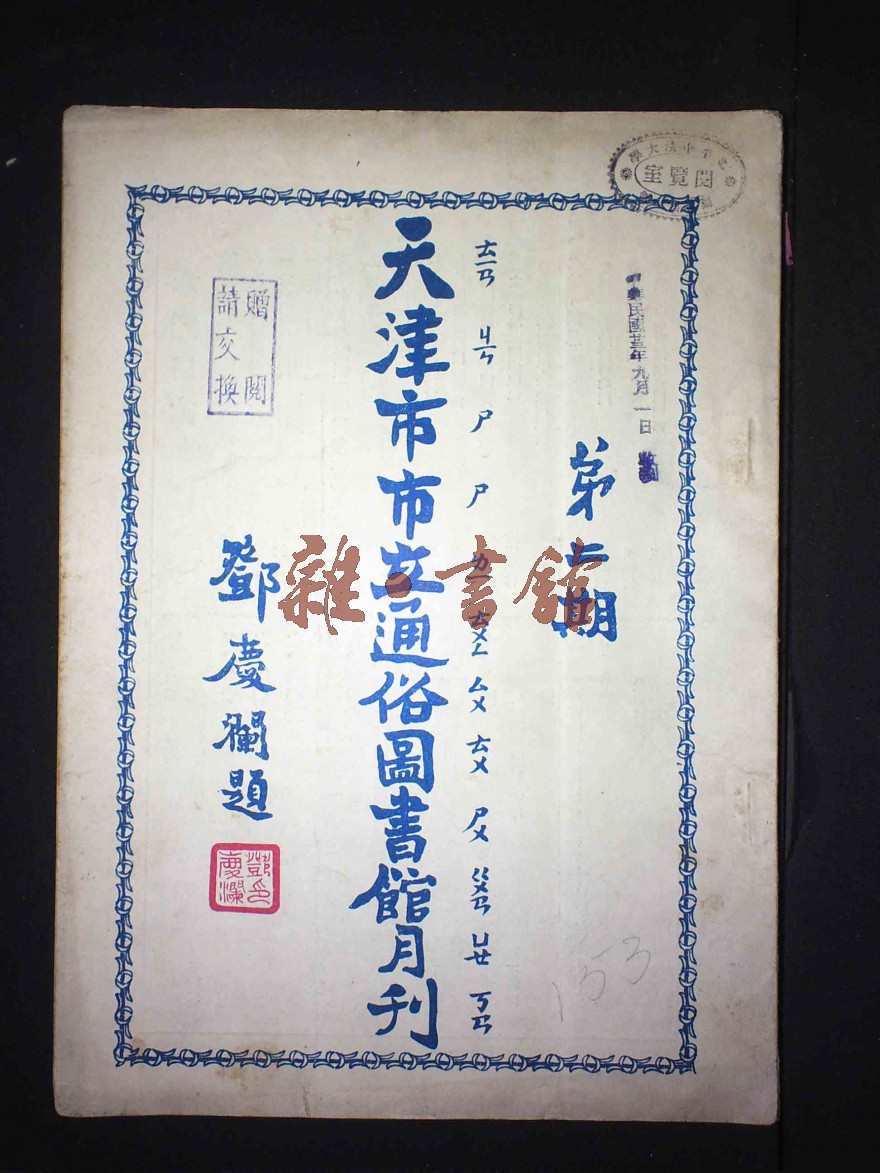 天津市市立通俗圖書館月刊
ㄊㄧㄢ ㄐㄧㄣ ㄕ ㄕ ㄌㄧ ㄊㄨㄥ ㄙㄨ ㄊㄨ ㄕㄨ ㄍㄨㄢ ㄩㄝ ㄎㄢ
第 期
中華民國廿三年九月一日
閱覽室
中法大學
鄧慶瀾題
鄧慶瀾印
贈閱
請交換
雜·書館
153